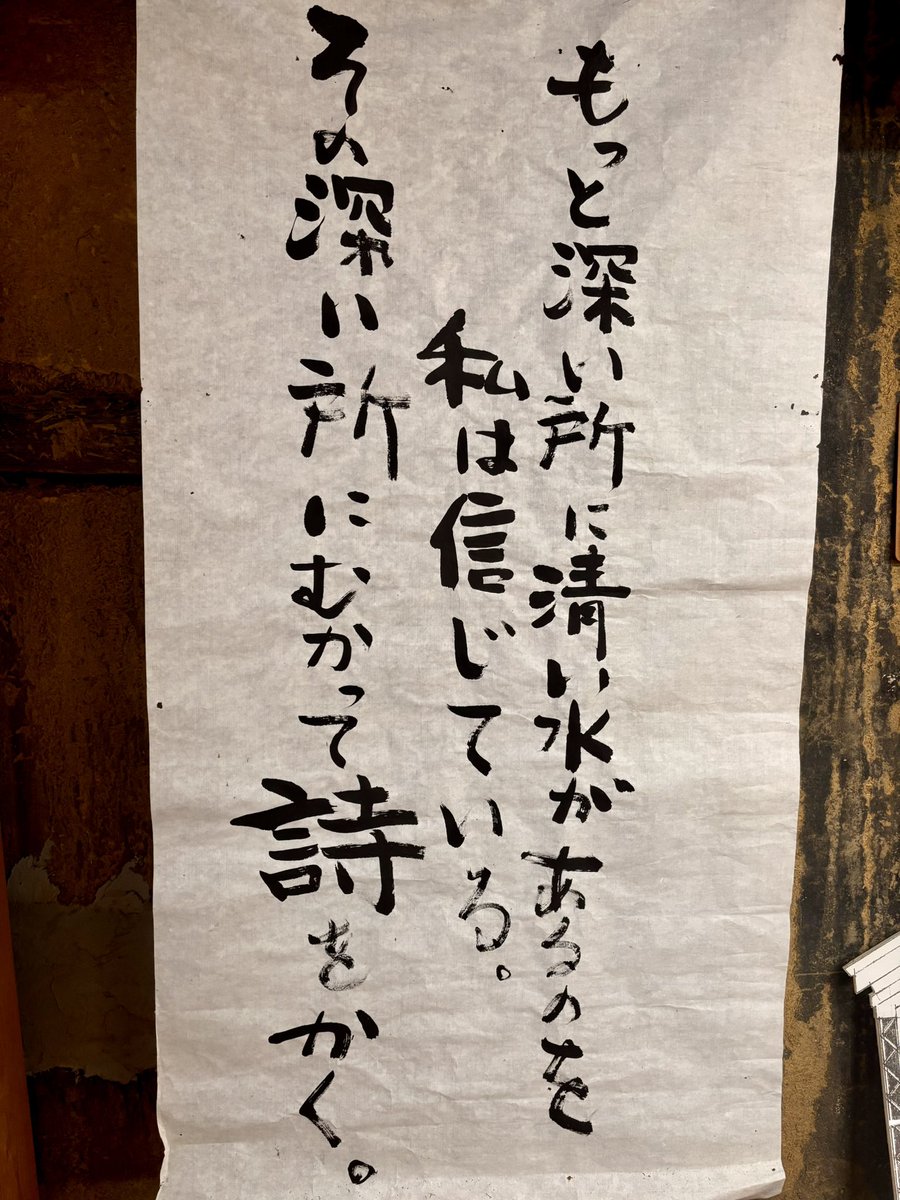 もっと深い所に清い水があるのを
私は信じている。
その深い所にむかって詩をかく。